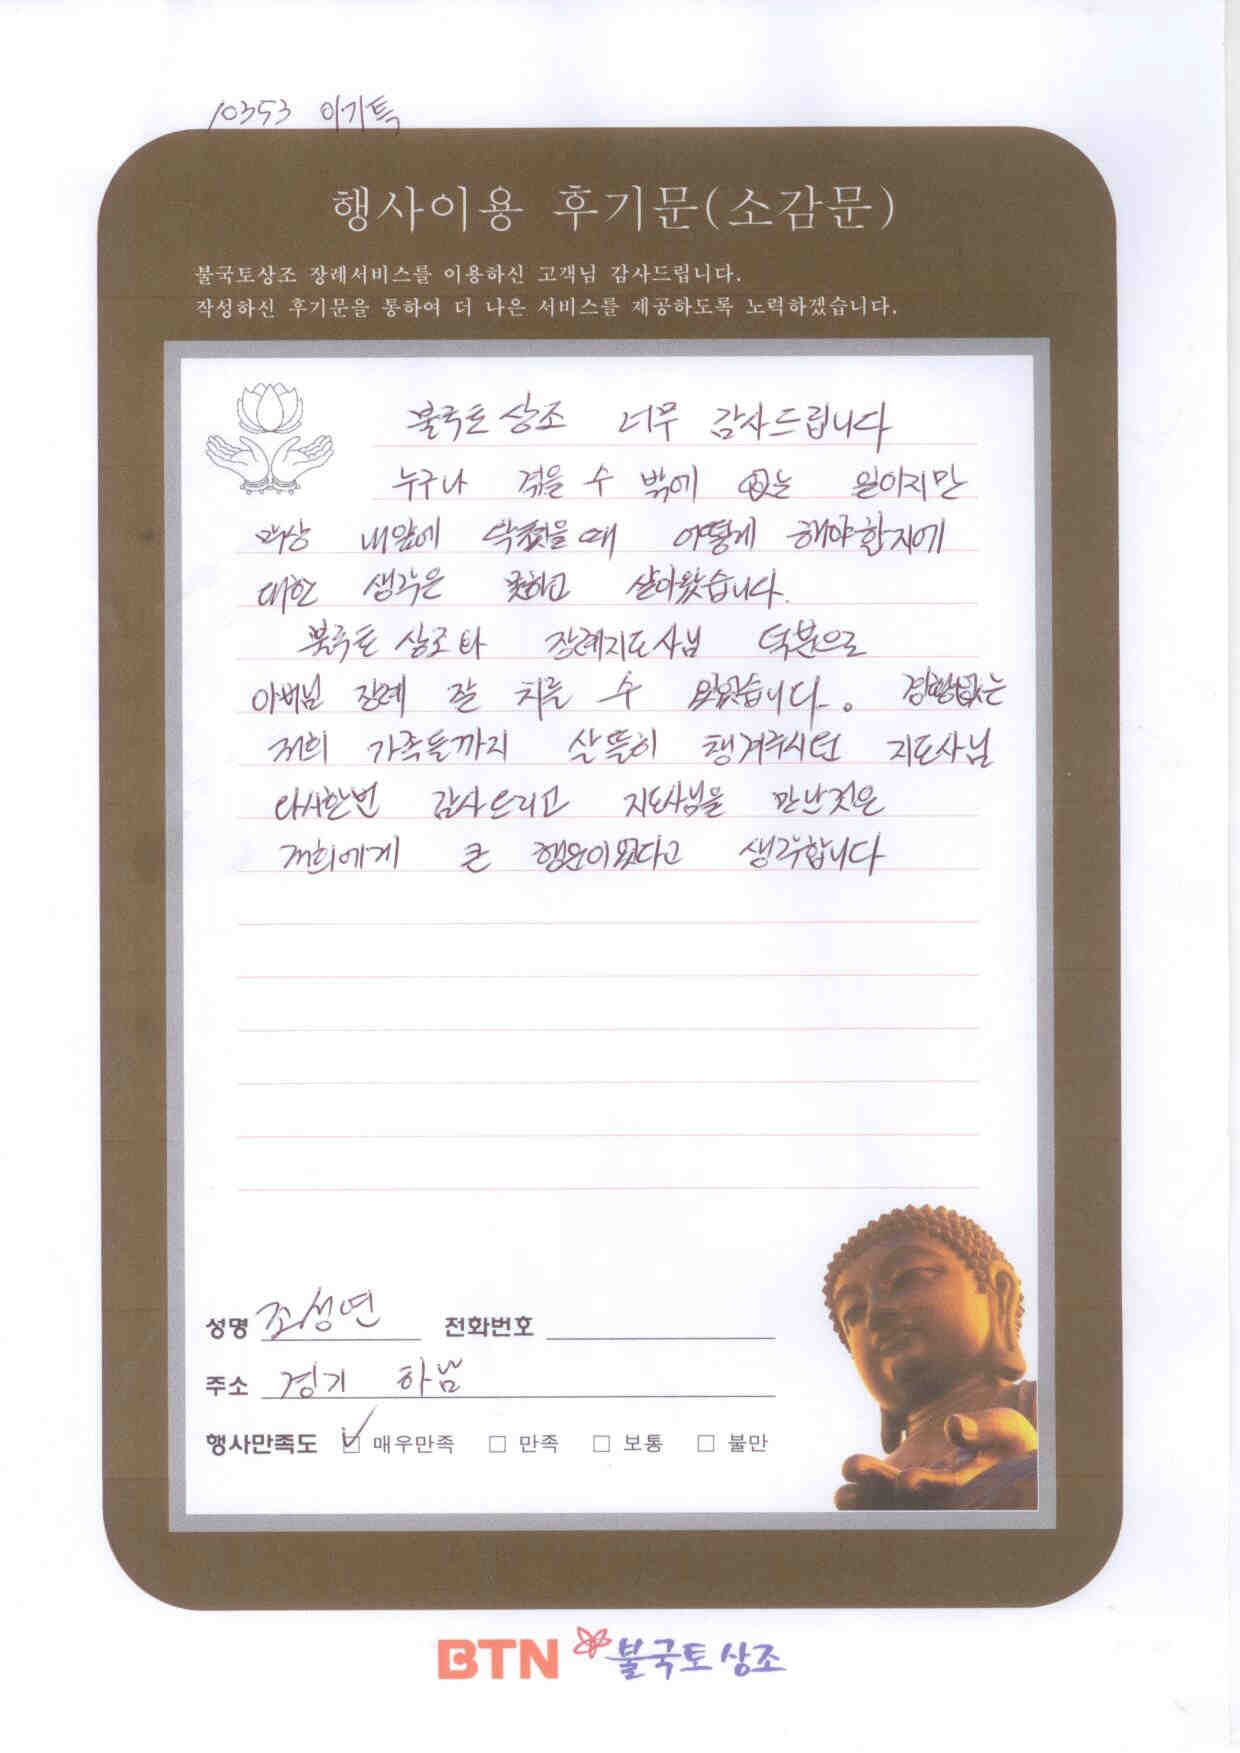 10353 이기특
행사이용 후기문(소감문)
불국토상조 장례서비스를 이용하신 고객님 감사드립니다.
작성하신 후기문을 통하여 더 나은 서비스를 제공하도록 노력하겠습니다.
불국토 상조 너무 감사드립니다
누구나 겪을 수 밖에 없는 일이지만
막상 내앞에 닥쳤을때 어떻게 해야할지에
대한 생각은 못하고 살아왔습니다.
불국토 상조와 장례지도사님 덕분으로
아버님 장례 잘 치를 수 있었습니다. 경황없는
저희 가족들까지 살뜰히 챙겨주시던 지도사님
다시한번 감사드리고 지도사님을 만난것은
저희에게 큰 행운이었다고 생각합니다
성명 조성연 전화번호
주소 경기 하남
행사만족도 매우만족 만족 보통 불만
BTN 불국토상조